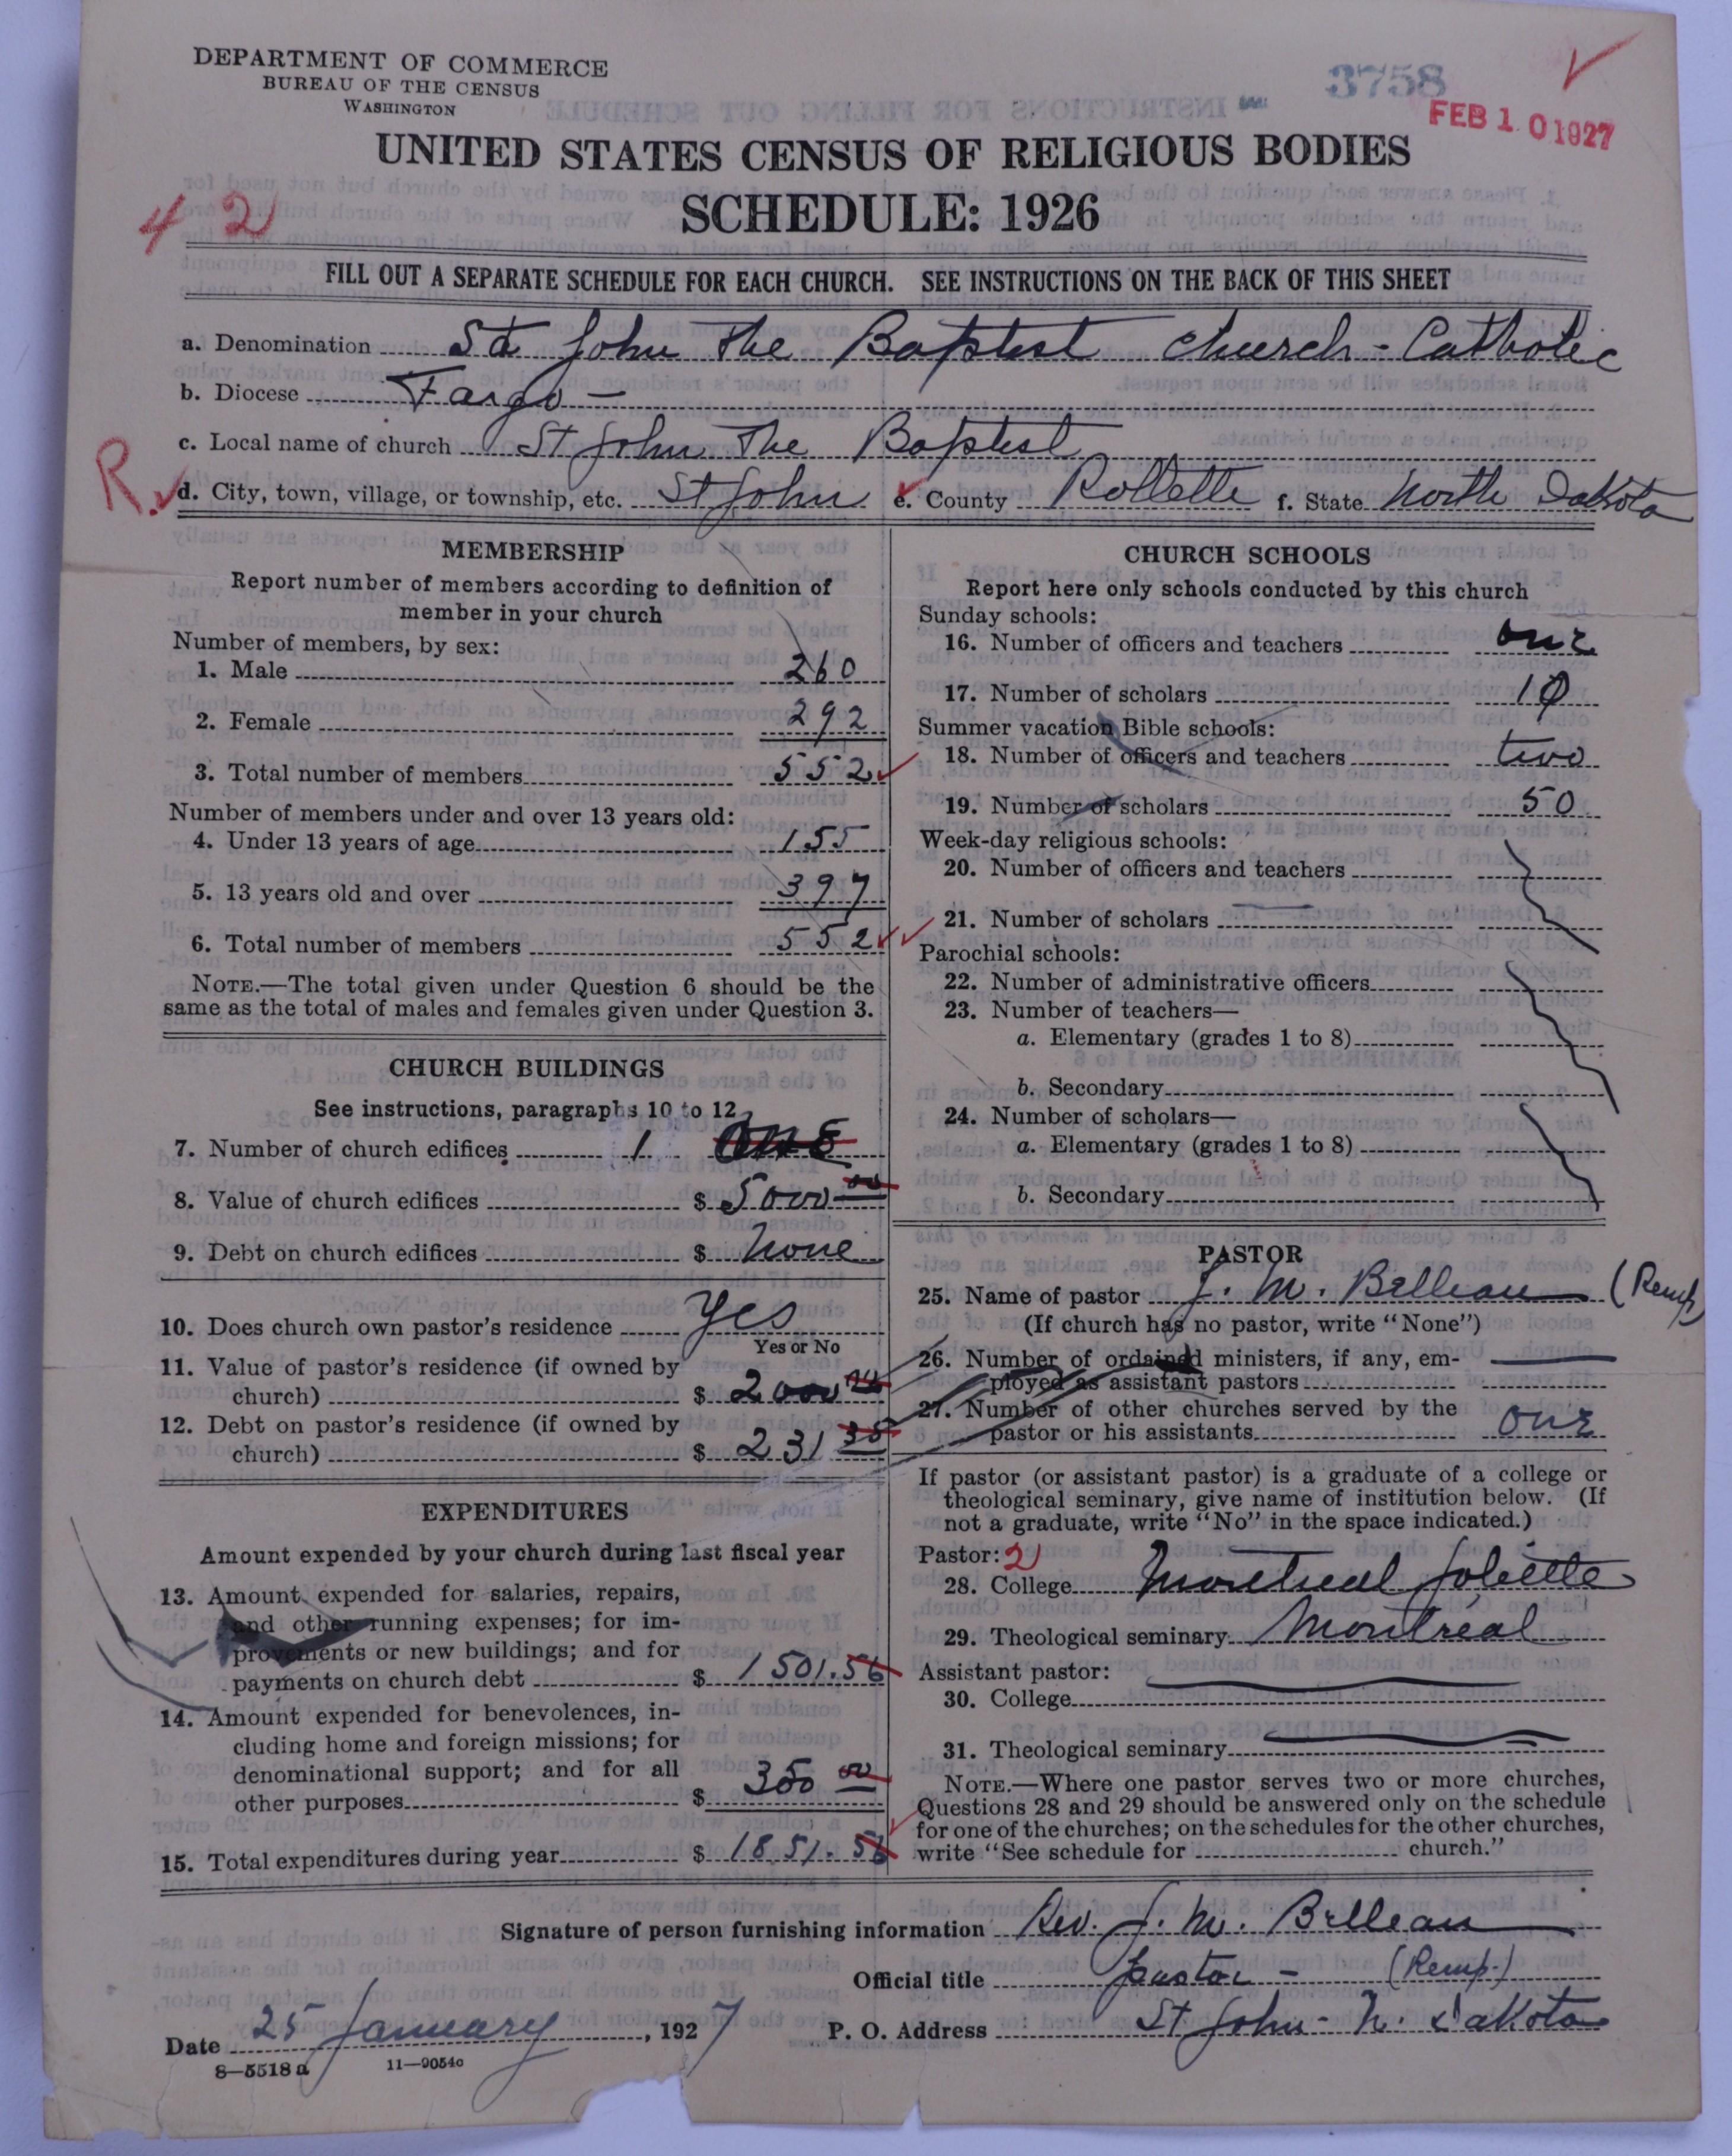 DEPARTMENT OF COMMERCE
BUREAU OF THE CENSUS
WASHINGTON
3758
FEB 10 1927
UNITED STATES CENSUS OF RELIGIOUS BODIES
SCHEDULE: 1926
42
FILL OUT A SEPARATE SCHEDULE FOR EACH CHURCH. SEE INSTRUCTIONS ON THE BACK OF THIS SHEET
a. Denomination St John The Baptist church - Catholic
b. Diocese Fargo -
c. Local name of church St John The Baptist
R.
d. City, town, village, or township, etc. St John e. County Rollette f. State North Dakota
MEMBERSHIP
Report number of members according to definition of
member in your church
Number of members, by sex:
1. Male 260
2. Female 292
3. Total number of members 552
Number of members under and over 13 years old:
4. Under 13 years of age 155
5. 13 years old and over 397
6. Total number of members 552
NOTE.—The total given under Question 6 should be the
same as the total of males and females given under Question 3.
CHURCH BUILDINGS
See instructions, paragraphs 10 to 12
7. Number of church edifices 1 one
8. Value of church edifices $ 5000 00
9. Debt on church edifices $ None
10. Does church own pastor's residence Yes
Yes or No
11. Value of pastor's residence (if owned by
church) $ 2000
12. Debt on pastor's residence (if owned by
church) $ 231 35
EXPENDITURES
Amount expended by your church during last fiscal year
13. Amount expended for salaries, repairs,
and other running expenses; for im-
provements or new buildings; and for
payments on church debt $ 1501.56
14. Amount expended for benevolences, in-
cluding home and foreign missions; for
denominational support; and for all
other purposes $ 350 00
15. Total expenditures during year $ 1851.56
CHURCH SCHOOLS
Report here only schools conducted by this church
Sunday schools:
16. Number of officers and teachers one
17. Number of scholars 10
Summer vacation Bible schools:
18. Number of officers and teachers two
19. Number of scholars 50
Week-day religious schools:
20. Number of officers and teachers
21. Number of scholars
Parochial schools:
22. Number of administrative officers
23. Number of teachers—
a. Elementary (grades 1 to 8)
b. Secondary
24. Number of scholars—
a. Elementary (grades 1 to 8)
b. Secondary
PASTOR
25. Name of pastor J. M. Belleau (Remp)
(If church has no pastor, write "None")
26. Number of ordained ministers, if any, em-
ployed as assistant pastors
27. Number of other churches served by the
pastor or his assistants one
If pastor (or assistant pastor) is a graduate of a college or
theological seminary, give name of institution below. (If
not a graduate, write "No" in the space indicated.)
Pastor: 2
28. College Montreal Joliette
29. Theological seminary Montréal
Assistant pastor:
30. College
31. Theological seminary
NOTE.—Where one pastor serves two or more churches,
Questions 28 and 29 should be answered only on the schedule
for one of the churches; on the schedules for the other churches,
write "See schedule for church."
Signature of person furnishing information Rev. J. M. Belleau
Official title pastor - (Remp.)
Date 25 January, 1927 P. O. Address St John - N. Dakota
8—5518 a 11—9054c